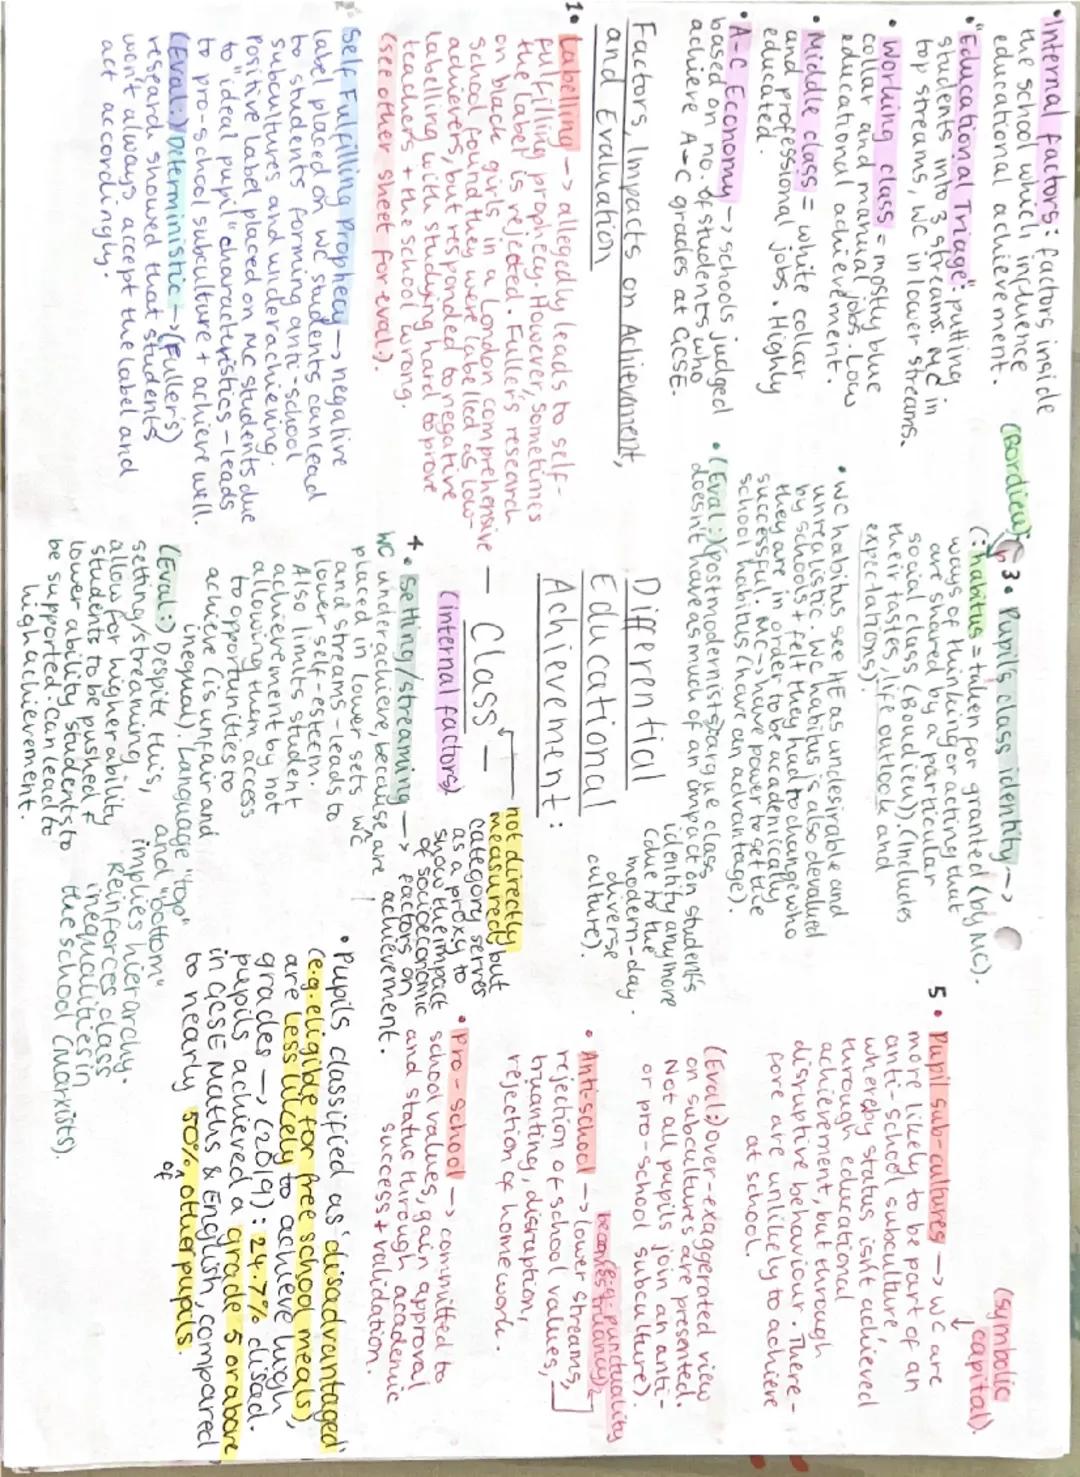 • Internal factors: factors inside
the school which influence
educational achievement.
• "Educational Triage": putting
students into 3 streams. MC in
top streams, WC in lower streams.
• Working class = mostly blue
collar and manual jobs. Low
educational achievement.
• Middle class = white collar
and professional jobs. Highly
educated.
• A-C Economy -> schools judged
based on no. of students who
achieve A-C grades at GCSE.
Factors, Impacts on Achievement,
and Evaluation
1• Labelling -> allegedly leads to self-
fulfilling prophecy. However, sometimes
the label is rejected. Fuller's research
on black girls in a London comprehensive
school found they were labelled as low-
achievers, but responded to negative
labelling with studying hard to prove
teachers + the school wrong.
(see other sheet for eval.)
2• Self Fulfilling Prophecy -> negative
label placed on WC students can lead
to students forming anti-school
subcultures and underachieving.
Positive label placed on MC students due
to "ideal pupil" characteristics - leads
to pro-school subculture + achieve well.
(Eval:) Deterministic -> (Fuller's)
research showed that students
won't always accept the label and
act accordingly.
(Bordieu)
3• Pupil's class identity ->
(: habitus = taken for granted (by MC).
ways of thinking or acting that
are shared by a particular
social class (Boudieu)), (Includes
their tastes, life outlook and
expectations).
• WC habitus see HE as undesirable and
unrealistic. WC habitus is also devalued
by schools + felt they had to change who
they are in order to be academically
successful. MC -> have power to set the
school habitus (have an advantage).
• (Eval:) (postmodernists) argue class
doesn't have as much of an impact on student's
identity anymore
(due to the
modern-day
diverse
culture).
Differential
Educational
Achievement:
— Class —
(internal factors)
not directly
measured, but
category serves
as a proxy to
show the impact
of socioeconomic
factors on
achievement.
4• Setting/streaming ->
WC underachieve, because are
placed in lower sets WC
and streams - leads to
lower self-esteem.
Also limits student
achievement by not
allowing them access
to opportunities to
achieve (is unfair and
unequal). Language "top"
and "bottom"
implies hierarchy.
Reinforces class
inequalities in
the school (Marxists).
(Eval:) Despite this,
setting/streaming
allow for higher ability
students to be pushed &
lower ability students to
be supported - can lead to
high achievement.
(symbolic
capital).
5• Pupil sub-cultures -> WC are
more likely to be part of an
anti-school subculture,
whereby status isn't achieved
through educational
achievement, but through
disruptive behaviour. There-
fore are unlikely to achieve
at school.
(Eval:) over-exaggerated view
on subcultures are presented.
Not all pupils join an anti-
or pro-school subculture).
• Anti-school -> lower streams,
rejection of school values,
truanting, disruption,
rejection of homework.
• Pro-school -> committed to
school values, gain approval
and status through academic
success + validation.
• Pupils classified as 'disadvantaged'
(e.g. eligible for free school meals),
are less likely to achieve high
grades -> (2019): 24.7% disad.
pupils achieved a grade 5 or above
in GCSE Maths & English, compared
to nearly 50% of other pupils.